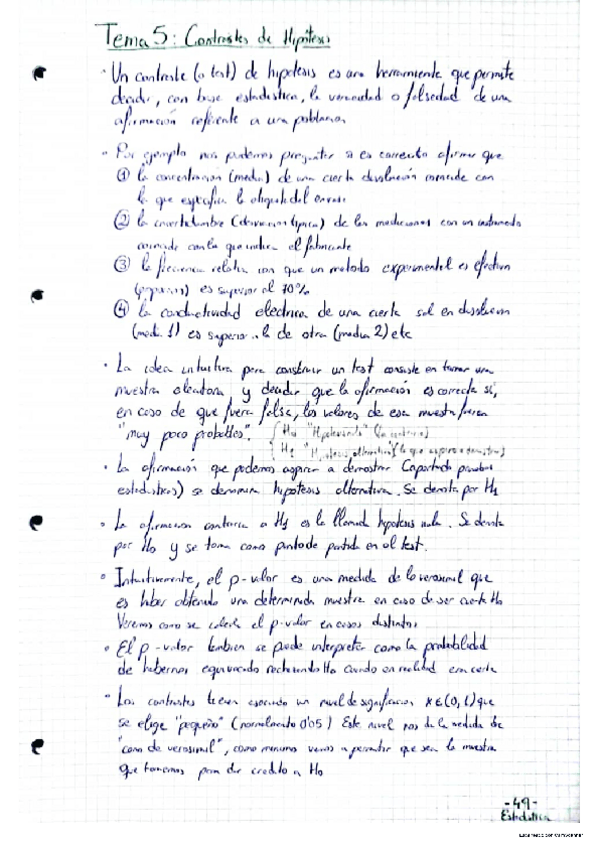 Tema 5: Contrastes de Hipótesis
· Un contraste (o test) de hipótesis es una herramienta que permite
decidir, con base estadística, la veracidad o falsedad de una
afirmación referente a una población
· Por ejemplo nos podemos preguntar si es correcto afirmar que
① la concentración (media) de una cierta disolución coincide con
la que especifica la etiqueta del envase
② la incertidumbre (desviacion típica) de las mediciones con un instrumento
coincide con la que indica el fabricante
③ la frecuencia relativa con que un metodo experimental es efectivo
es superior al 70%
④ la conductividad electrica de una cierta sal en disolucion
(media 1) es superior a la de otra (media 2) etc
· La idea intuitiva para construir un test consiste en tomar una
muestra aleatoria y decidir que la afirmación es correcta si,
en caso de que fuera falsa, los valores de esa muestra fueran
"muy poco probables".
H₁ (lo que aspiro a demostrar)
· La afirmación que podemos aspirar a demostrar (aportando pruebas
estadísticas) se denomina hipótesis alternativa. Se denota por H₁
· La afirmacion contraria a H₁ es la llamada hipotesis nula. Se denota
por H₀ y se toma como punto de partida en el test.
· Intuitivamente, el p-valor es una medida de lo verosimil que
es haber obtenido una determinada muestra en caso de ser cierta H₀
Veremos como se calcula el p-valor en casos distintos
· El p-valor tambien se puede interpretar como la probabilidad
de habernos equivocado rechazando H₀ cuando en realidad era cierta
· Los contrastes tienen asociado un nivel de significacion α∈(0,1) que
se elige "pequeño" (normalmente 0'05) Este nivel nos da la medida de
"como de verosimil", como minimo vamos a permitir que sea la muestra
que tomemos para dar credito a H₀
-49-
Estadística